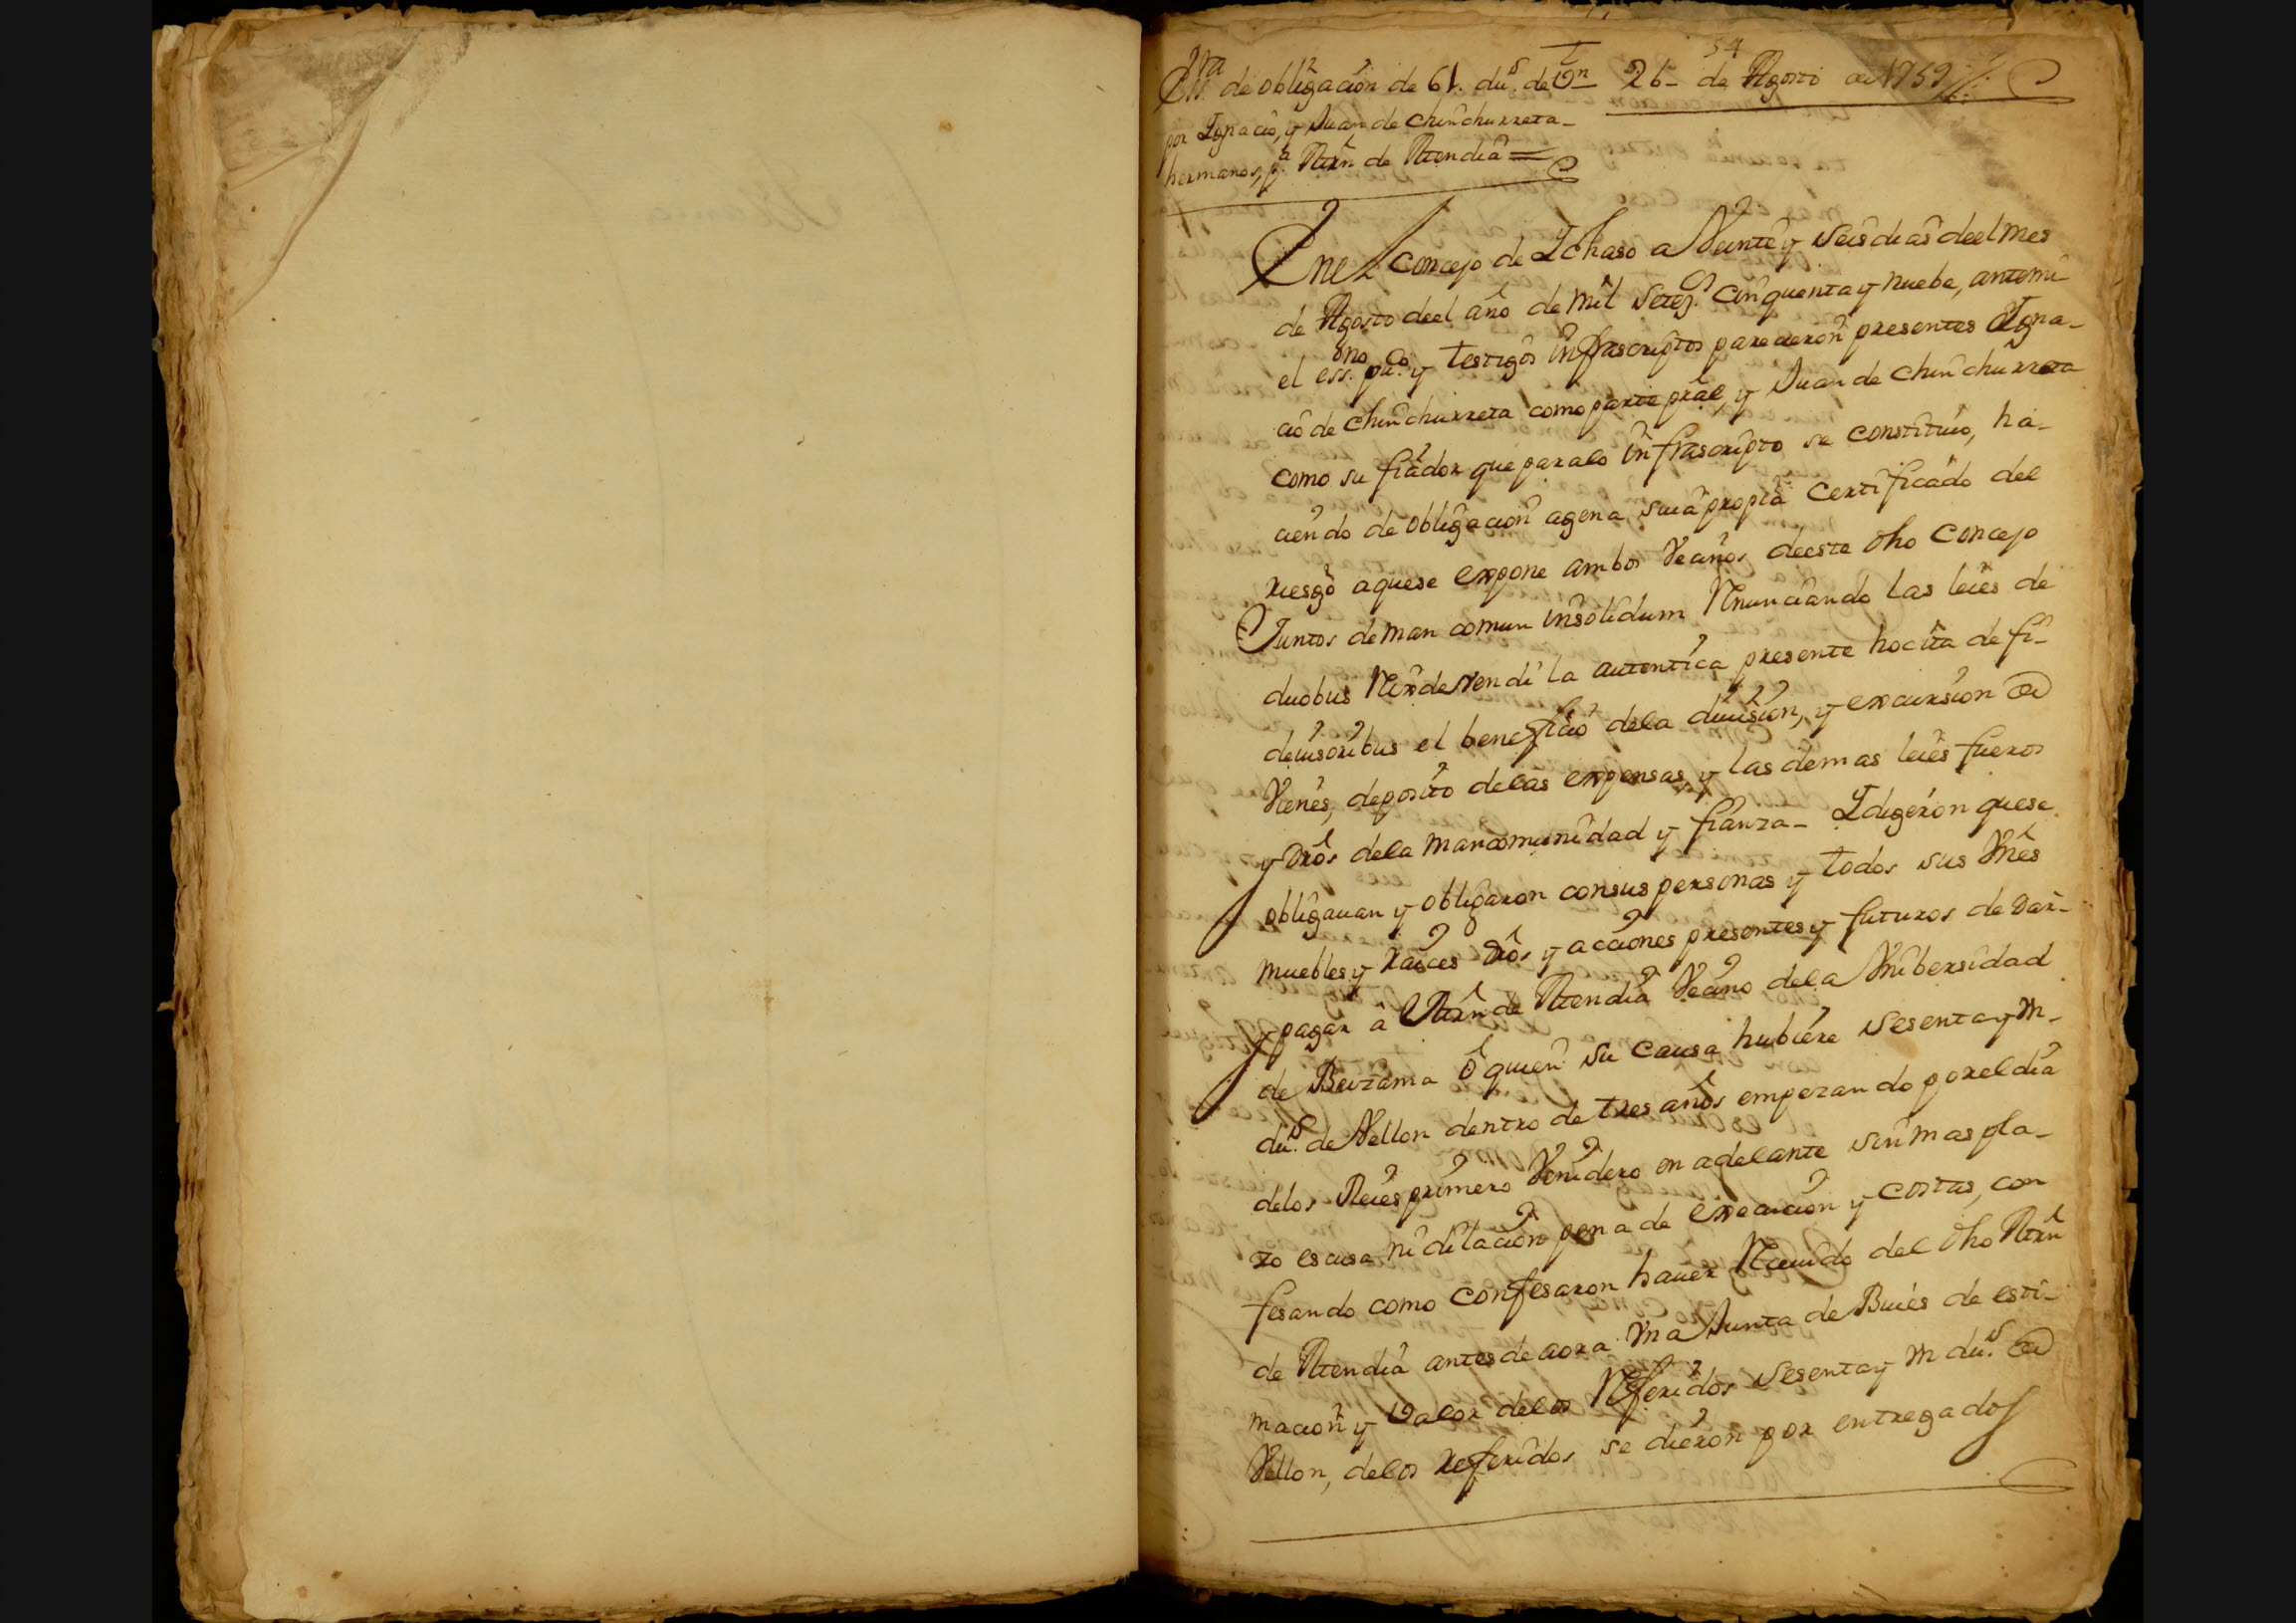 54
Essra de obligacion de 61. dus. de Vn 26- de Agosto de 1759
por Ignacio, y Juan de Chinchurreta-
hermanos, pa. Mrn de Atendia=
En el concejo de Ychaso a Veinte y Seis dias deel mes
de Agosto deel año de mil Setezs. cinquenta y nuebe, antemi
el essno. puco. y testigos infrascriptos parecieron presentes Igna-
cio de Chinchurreta como parte pral, y Juan de Chinchurreta
como su fiador que paralo infrascripto se constituio, ha-
ciendo de obligacion agena suia propia certificado del
riesgo aquese expone ambos Vecinos deeste dho Concejo
Juntos deman comun insolidum Rnunciando las leies de
duobus Rex devendi la autentica presente hocita de fi-
deiusoribus el beneficio dela diuision, y excursion de
Vienes, deposito delas expensas, y las demas leies fueros
y dros dela mancomunidad y fianza- Y digeron quese
obligauan y obligaron consus personas y todos sus Vnes
muebles y raices dros y acciones presentes y futuros de dar-
y pagar a Mrn de Atendia Vecino dela Vnibersidad
de Beizama ô quien su causa hubiere Sesenta y Vn-
dus. de Vellon dentro de tres años empezando por el dia
delos Reies primero Venidero en adelante sin mas pla-
zo escusa ni dilacion pena de execucion y costas, con
fesando como confesaron hauer Rceuido del dho Mrn
de Atendia antes de aora Vna Junta de Buies de esti-
macion y Valor delos Rferidos Sesenta y Vn dus. de
Vellon, delos referidos se dieron por entregados